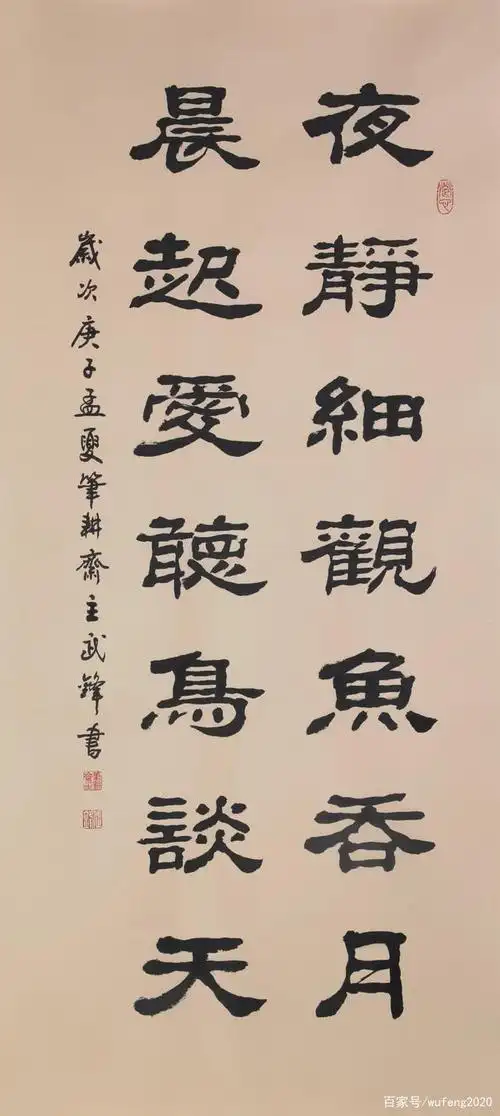 夜靜細觀魚吞月
晨起愛聽鳥談天
歲次庚子孟夏筆耕齋主武鋒書
百家号/wufeng2020